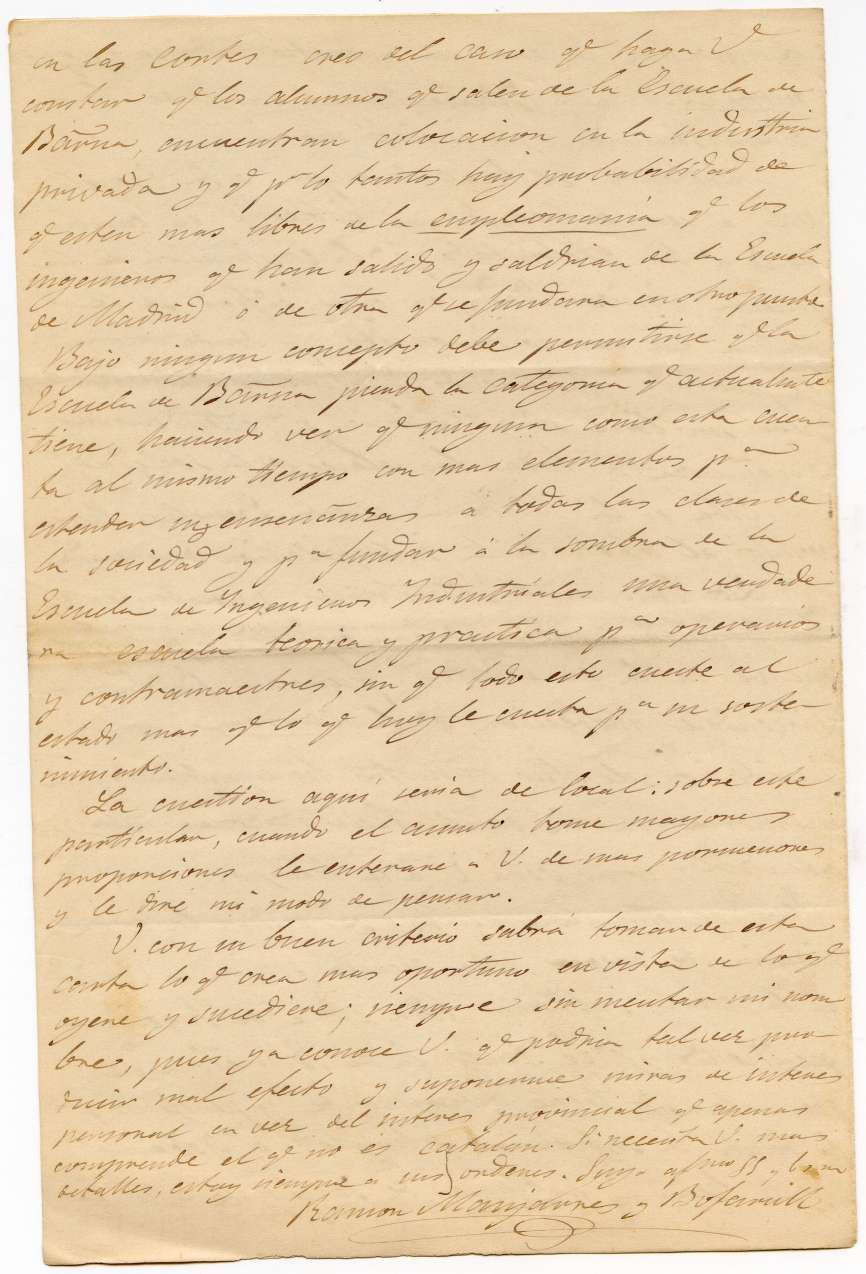 en las Cortes creo del caso qe haga V.
constar qe los alumnos qe salen de la Escuela de
Barña, encuentran colocacion en la industria
privada y qe pr lo tantos hay probabilidad de
qe esten mas libres de la empleomanía qe los
ingenieros qe han salido y saldrian de la Escuela
de Madrid ó de otra qe se fundara en otro punto
Bajo ningun concepto debe permitirse qe la
Escuela de Barña pierda la categoria qe actualmte
tiene, haciendo ver qe ninguna como esta cuen-
ta al mismo tiempo con mas elementos pa
estender sus enseñanzas á todas las clases de
la sociedad y pa fundar á la sombra de la
Escuela de Ingenieros Industriales una verdade-
ra escuela teorica y practica pa operarios
y contramaestres, sin qe todo esto cueste al
estado mas qe lo qe hoy le cuesta pa su soste-
nimiento.
La cuestion aquí seria de local: sobre este
particular, cuando el asunto tome mayores
proporciones le enterare a V. de mas pormenores
y le diré mi modo de pensar.
V. con su buen criterio sabrá tomar de esta
carta lo qe crea mas oportuno en vista de lo qe
oyere y sucediere; siempre sin mentar mi nom-
bre, pues ya conoce V. qe podria tal vez pro-
ducir mal efecto y suponerme miras de interes
personal en vez del interes provincial qe apenas
comprende el qe no es catalán. Si necesita V. mas
detalles, estoy siempre a sus ordenes. Suyo afmo SS y
Ramon Manjarres y Bofarull